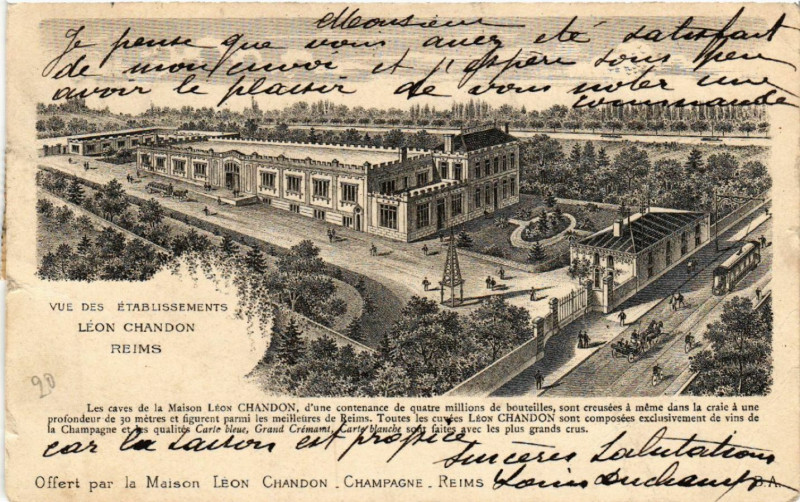 Monsieur
Je pense que vous avez été satisfait
de mon envoi et j'espère sous peu
avoir le plaisir de vous noter une
commande
VUE DES ÉTABLISSEMENTS
LÉON CHANDON
REIMS
20
Les caves de la Maison LÉON CHANDON, d'une contenance de quatre millions de bouteilles, sont creusées à même dans la craie à une
profondeur de 30 mètres et figurent parmi les meilleures de Reims. Toutes les cuvées LÉON CHANDON sont composées exclusivement de vins de
la Champagne et les qualités Carte bleue, Grand Crémant, Carte blanche sont faites avec les plus grands crus.
car la saison est propice
Sincères Salutations
Louis Duchamps
Offert par la Maison LÉON CHANDON - CHAMPAGNE - REIMS